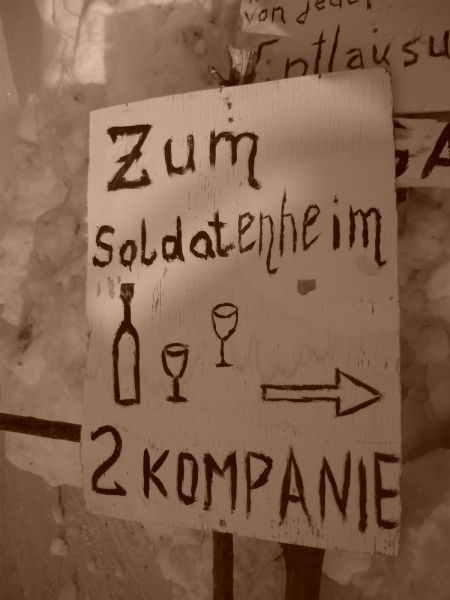 von jeder
Entlausu
Zum
Soldatenheim
2 KOMPANIE